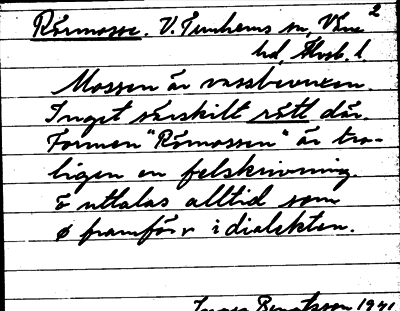 2
Rörmosse. V. Tunhems sn, Väne
hd, Älvsb. l.
Mossen är vassbevuxen.
Inget särskilt rött där.
Formen "Römossen" är tro-
ligen en felskrivning.
ö uttalas alltid som
ø framför r i dialekten.
Bengtsson 1941